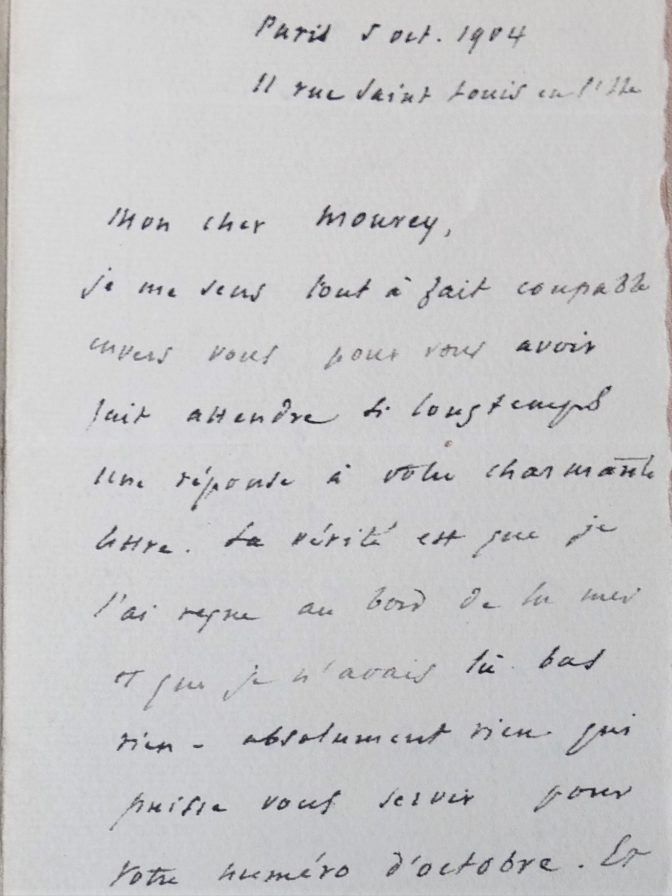 Paris 5 oct. 1904
11 rue Saint Louis en l'Ile
Mon cher Mourey,
je me sens tout à fait coupable
envers vous pour vous avoir
fait attendre si longtemps
une réponse à votre charmante
lettre. La vérité est que je
l'ai reçue au bord de la mer
et que je n'avais là bas
rien - absolument rien qui
puisse vous servir pour
votre numéro d'octobre. Et